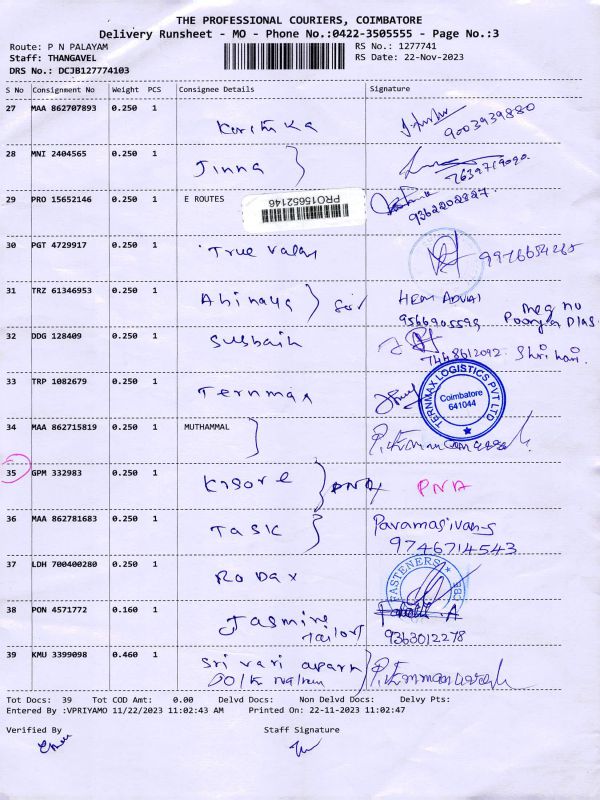 THE PROFESSIONAL COURIERS, COIMBATORE
Delivery Runsheet - MO - Phone No.:0422-3505555 - Page No.:3
Route: P N PALAYAM RS No.: 1277741
Staff: THANGAVEL RS Date: 22-Nov-2023
DRS No.: DCJB127774103
S No Consignment No Weight PCS Consignee Details Signature
27 MAA 862707893 0.250 1
9003939880
28 MNI 2404565 0.250 1 Jinna
29 PRO 15652146 0.250 1 E ROUTES PRO15652146
9362202827
30 PGT 4729917 0.250 1 True Valay 9976654265
31 TRZ 61346953 0.250 1 Abinaya HEM ADVAI
9566905599
32 DDG 128409 0.250 1
7448612092 Shri hari.
33 TRP 1082679 0.250 1 Ternmax TERNMAX LOGISTICS PVT LTD
Coimbatore
641044
34 MAA 862715819 0.250 1 MUTHAMMAL
35 GPM 332983 0.250 1 Kisore PNA PNA
36 MAA 862781683 0.250 1 TASK Paramasivan-s
9746714543
37 LDH 700400280 0.250 1 Rodax FASTENERS CBE
38 PON 4571772 0.160 1 Jasmine
Tailors 9363012278
39 KMU 3399098 0.460 1 Sri vari apark
Tot Docs: 39 Tot COD Amt: 0.00 Delvd Docs: Non Delvd Docs: Delvy Pts:
Entered By :VPRIYAMO 11/22/2023 11:02:43 AM Printed On: 22-11-2023 11:02:47
Verified By Staff Signature